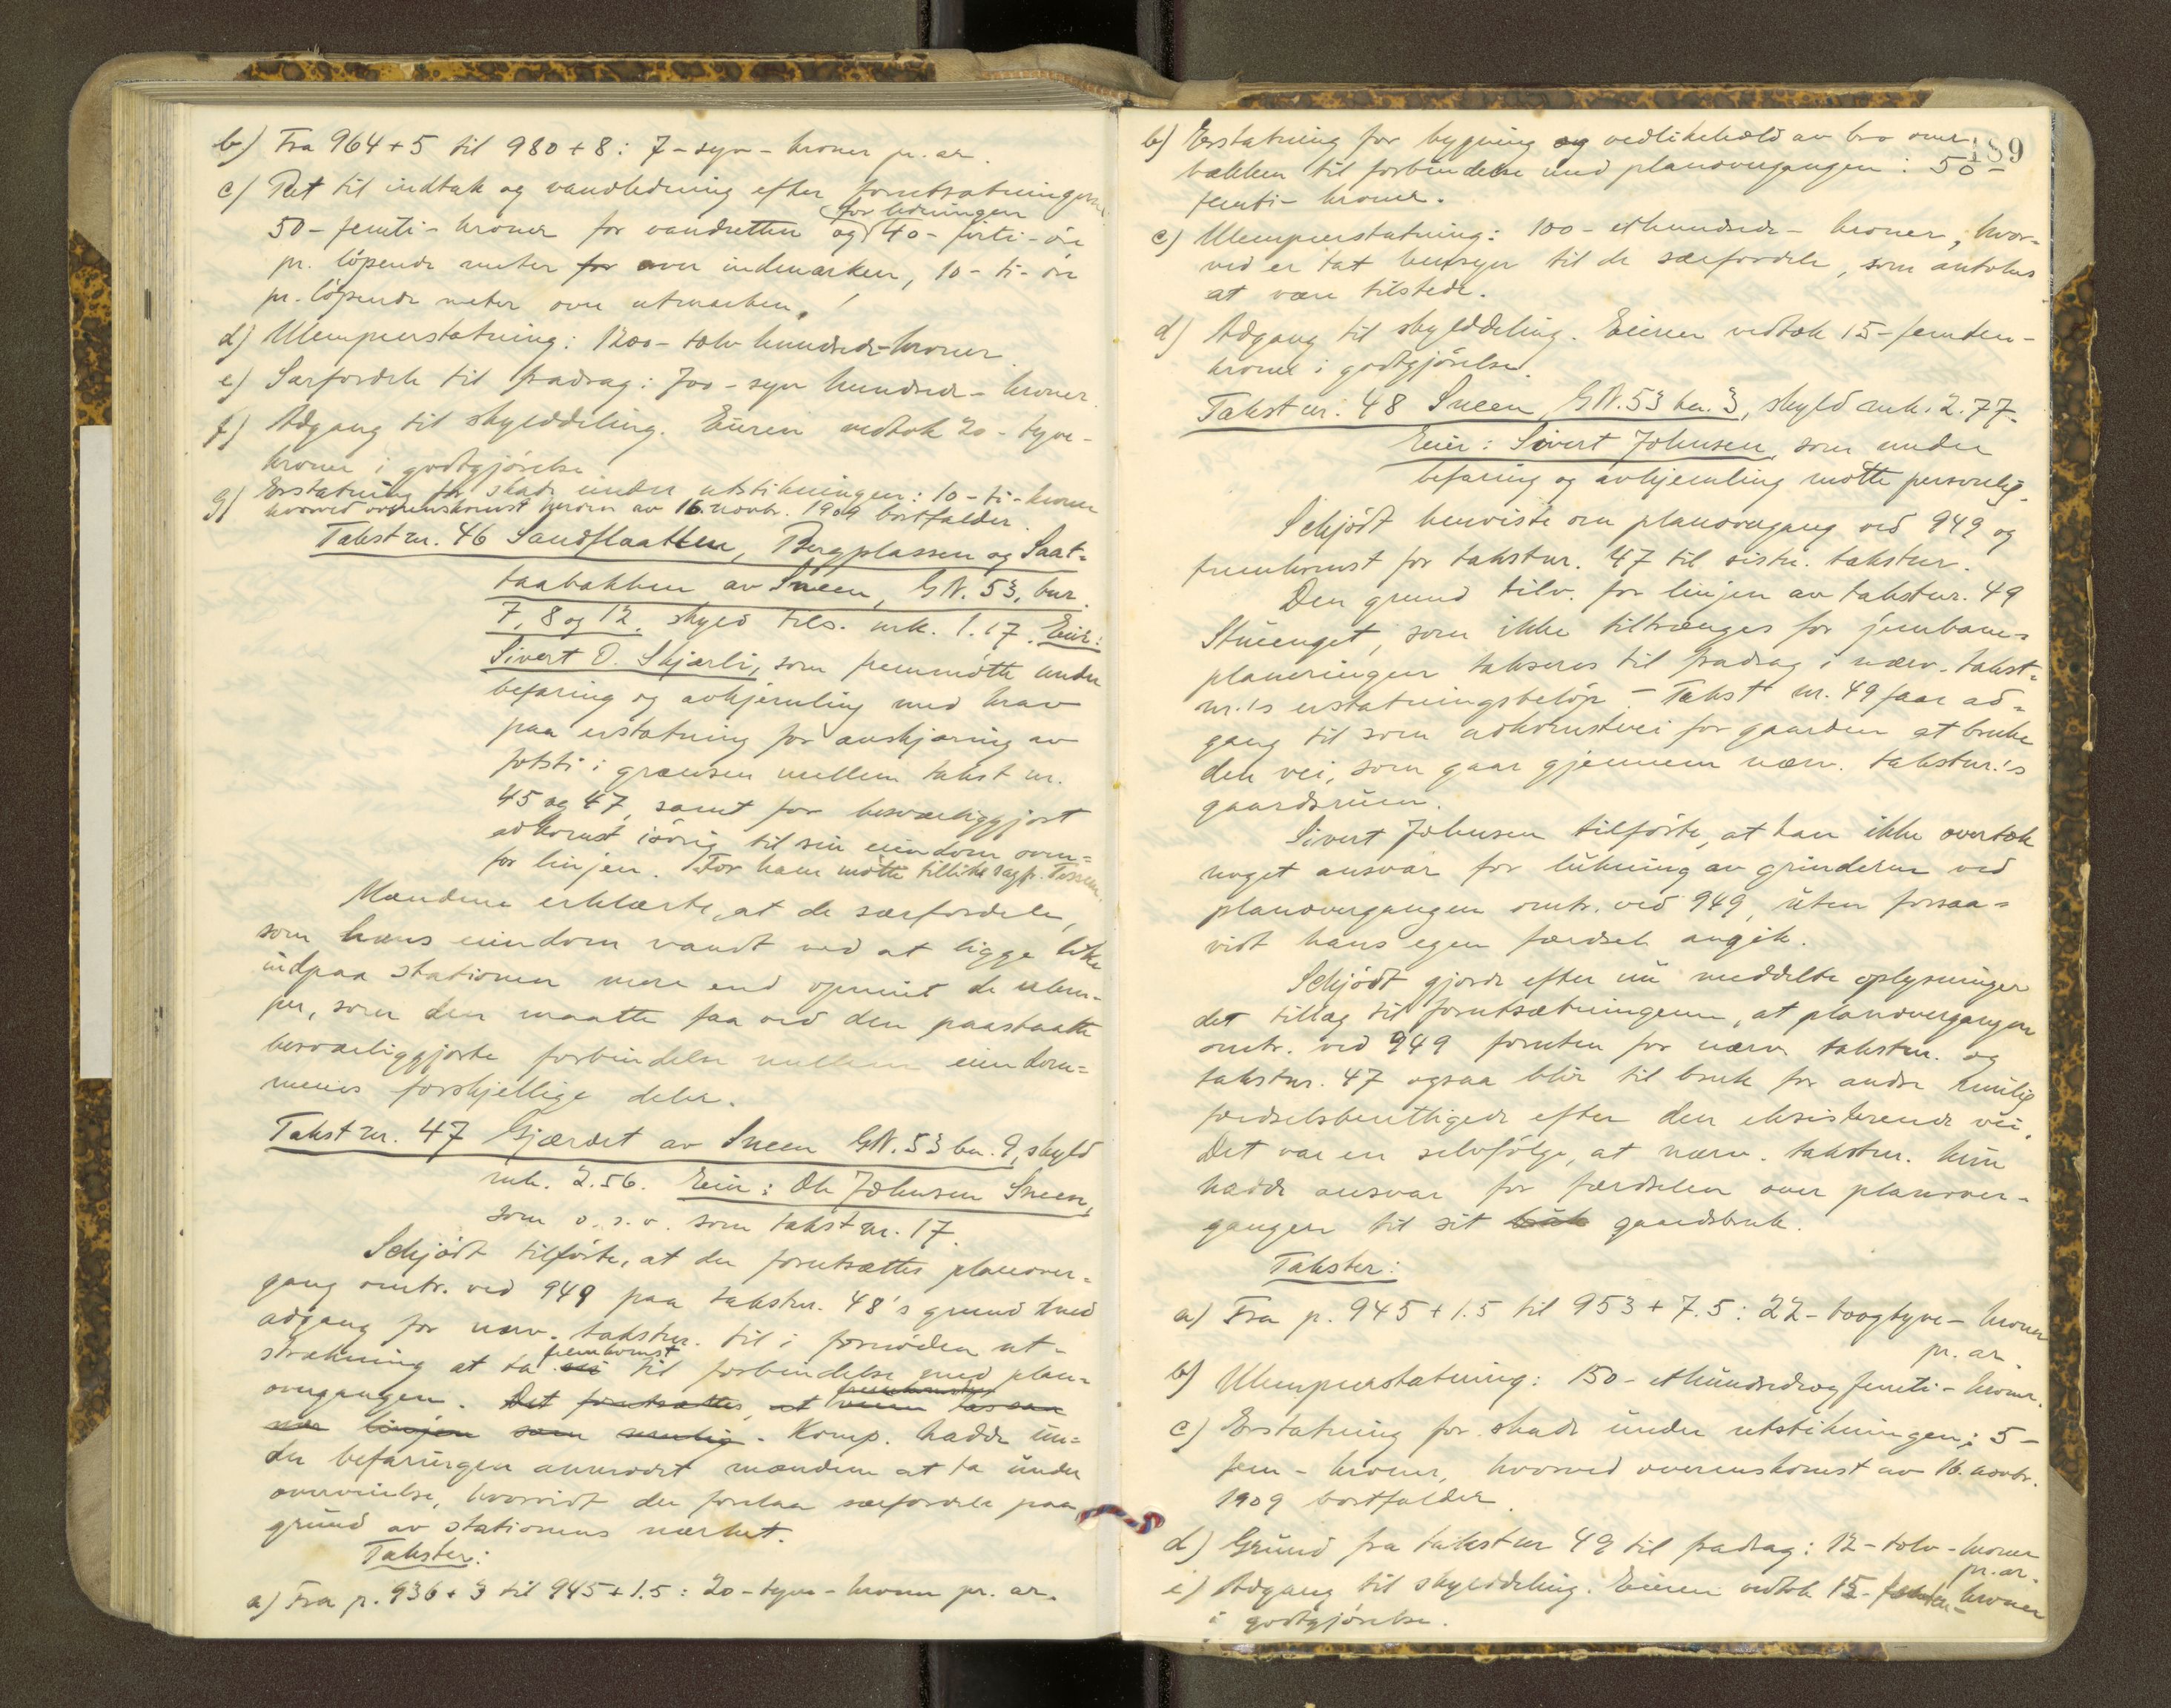 b) Fra 964 + 5 til 980 + 8: 7 - syv - kroner pr. ar.
c) Ret til indtak og vandledning efter forutsætningerne
50 - femti - kroner for vandretten og for ledningen 40 - förti - öre
pr. löpende meter for over indmarken, 10 - ti - öre
pr. löpende meter over utmarken.
d) Ulempeerstatning: 1200 - tolv hundrede - kroner.
e) Særfordele til fradrag: 700 - syv hundrede - kroner.
f) Adgang til skylddeling. Eieren vedtok 20 - tyve -
kroner i godtgjörelse.
g) Erstatning for skade under utstikningen: 10 - ti - kroner
hvorved overenskomst herom av 16. novbr. 1909 bortfalder.
Takst nr. 46 Sandflaatten, Bergplassen og Saat-
taabakken av Sneen, G.N. 53, bnr.
7, 8 og 12, skyld tils. mrk. 1.17. Eier:
Sivert O. Skjærli, som fremmötte under
befaring og avhjemling med krav
paa erstatning for avskjæring av
fotsti i grænsen mellem takst nr.
45 og 47, samt for besværliggjort
adkomst iövrig til sin eiendom oven-
for linjen. For ham mötte tillike sagf.
Mændene erklærte, at de særfordele,
som hans eiendom vandt ved at ligge like
indpaa stationen mere end opveiet de ulem-
per, som den maatte faa ved den paastaatte
besværliggjorte forbindelse mellem eiendom-
mens forskjellige deler.
Takst nr. 47 Gjærdet av Sneen G.N. 53 bn. 9, skyld
mrk. 2.56. Eier: Ole Johnsen Sneen,
som o. s. v. som takst nr. 17.
Schjödt tilförte, at der forutsættes planover-
gang omtr. ved 949 paa takstnr. 48's grund med
adgang for nærv. takstnr. til i fornöden ut-
strækning at ta fremkomst vei til forbindelse med plan-
overgangen. Det forutsættes, at fremkomsten
nær linjen som . Komp. hadde un-
der befaringen anmodet mændene at ta under
overveielse, hvorvidt der forelaa særfordele paa
grund av stationens nærhet.
Takster:
a) Fra p. 936 + 3 til 945 + 1.5: 20 - tyve - kroner pr. ar.
189
b) Erstatning for bygning og vedlikehold av bro over
bækken til forbindelse med planovergangen: 50 -
femti - kroner.
c) Ulempeerstatning: 100 - ethundrede - kroner, hvor-
ved er tat hensyn til de særfordele, som antokes
at være tilstede.
d) Adgang til skylddeling. Eieren vedtok 15 - femten -
kroner i godtgjörelse.
Takst nr. 48 Sneen, G.N. 53 bn. 3, skyld mrk. 2.77.
Eier: Sivert Johnsen, som under
befaring og avhjemling mötte personlig.
Schjödt henviste om planovergang ved 949 og
fremkomst for takstnr. 47 til sistn. takstnr.
Den grund tilv. for linjen av takstnr. 49
Stuenget, som ikke tiltrænges for jernbane-
planeringen takseres til fradrag i nærv. takst-
nr.'s erstatningsbelöp - Takst nr. 49 faar ad-
gang til som adkomstvei for gaarden at bruke
den vei, som gaar gjennem nærv. takstnr.'s
gaardsrum.
Sivert Johnsen tilförte, at han ikke overtok
noget ansvar for lukning av grinderne ved
planovergangen omtr. ved 949, uten forsaa-
vidt hans egen færdsel angik.
Schjödt gjorde efter nu meddelte oplysninger
det tillæg til forutsætningerne, at planovergangen
omtr. ved 949 foruten for nærv. takstnr. og
takstnr. 47 ogsaa blir til bruk for andre
færdselsberettigede efter den eksisterende vei.
Det var en selvfölge, at nærv. takstnr. kun
hadde ansvar for færdselen over planover-
gangen til sit bruk gaardsbruk.
Takster:
a) Fra p. 945 + 1.5 til 953 + 7.5: 22 - toogtyve - kroner
pr. ar.
b) Ulempeerstatning: 150 - ethundredeogfemti - kroner.
c) Erstatning for skade under utstikningen: 5 -
fem - kroner, hvorved overenskomst av 16. novbr.
1909 bortfalder.
d) Grund fra takst nr 49 til fradrag: 12 - tolv - kroner
pr. ar.
e) Adgang til skylddeling. Eieren vedtok 15 - femten - kroner
i godtgjörelse.